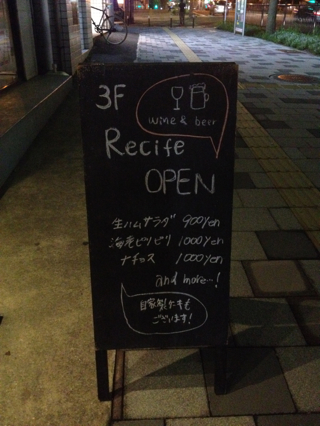 3F
wine & beer
Recife
OPEN
生ハムサラダ 900yen
海老ピリピリ 1000yen
ナチョス 1000yen
and more~!
自家製ケーキも
ございます!